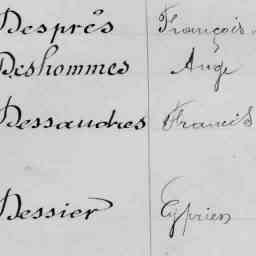 Desprês François
Deshommes Ange
Dessaudres Francis
Dessier Cyprien